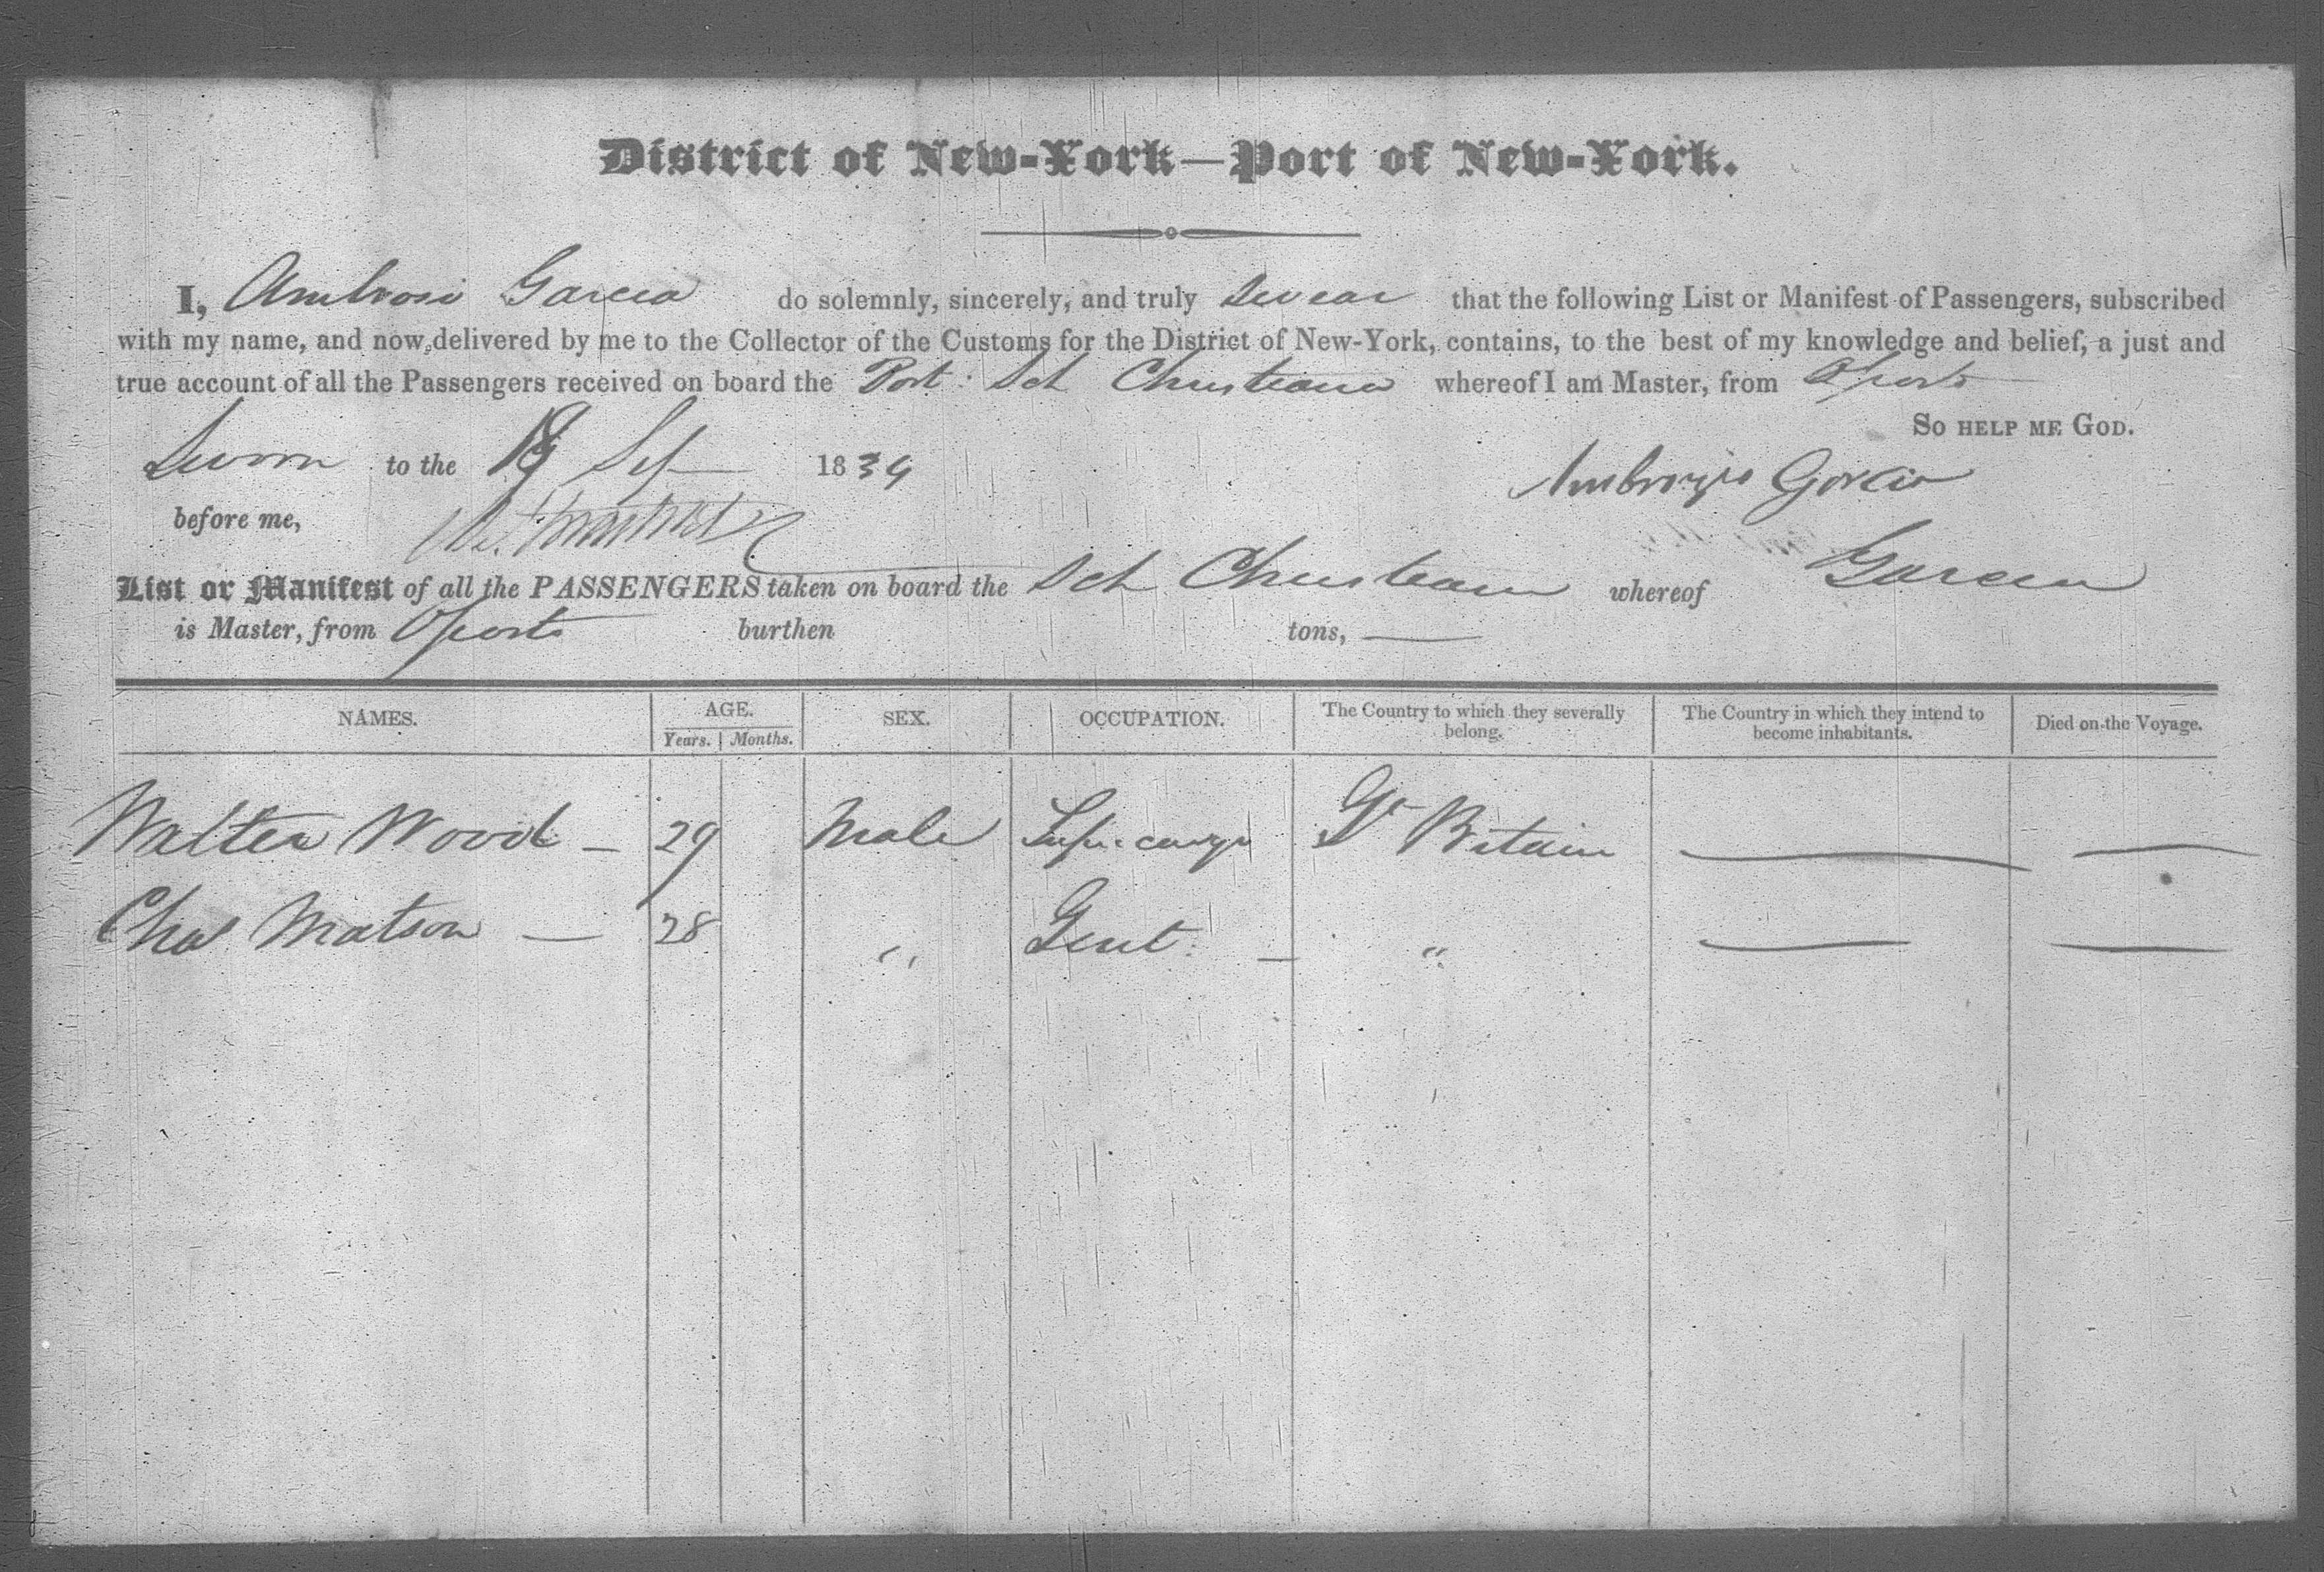 District of New-York—Port of New-York.
I, Ambrosi Garcia do solemnly, sincerely, and truly Swear that the following List or Manifest of Passengers, subscribed
with my name, and now delivered by me to the Collector of the Customs for the District of New-York, contains, to the best of my knowledge and belief, a just and
true account of all the Passengers received on board the Port: Sch Christiana whereof I am Master, from Oporto
So help me God.
Sworn to the 18 Sep 1839
Ambrozio Garcia
before me,
List or Manifest of all the PASSENGERS taken on board the Sch Christiana whereof Garcia
is Master, from Oporto burthen tons, —
NAMES. AGE. SEX. OCCUPATION. The Country to which they severally belong. The Country in which they intend to become inhabitants. Died on the Voyage.
Years. Months.
Walter Wood — 29 Male Supr. cargo Gt Britain — —
Chas Matson — 28 " Gent. — " — —